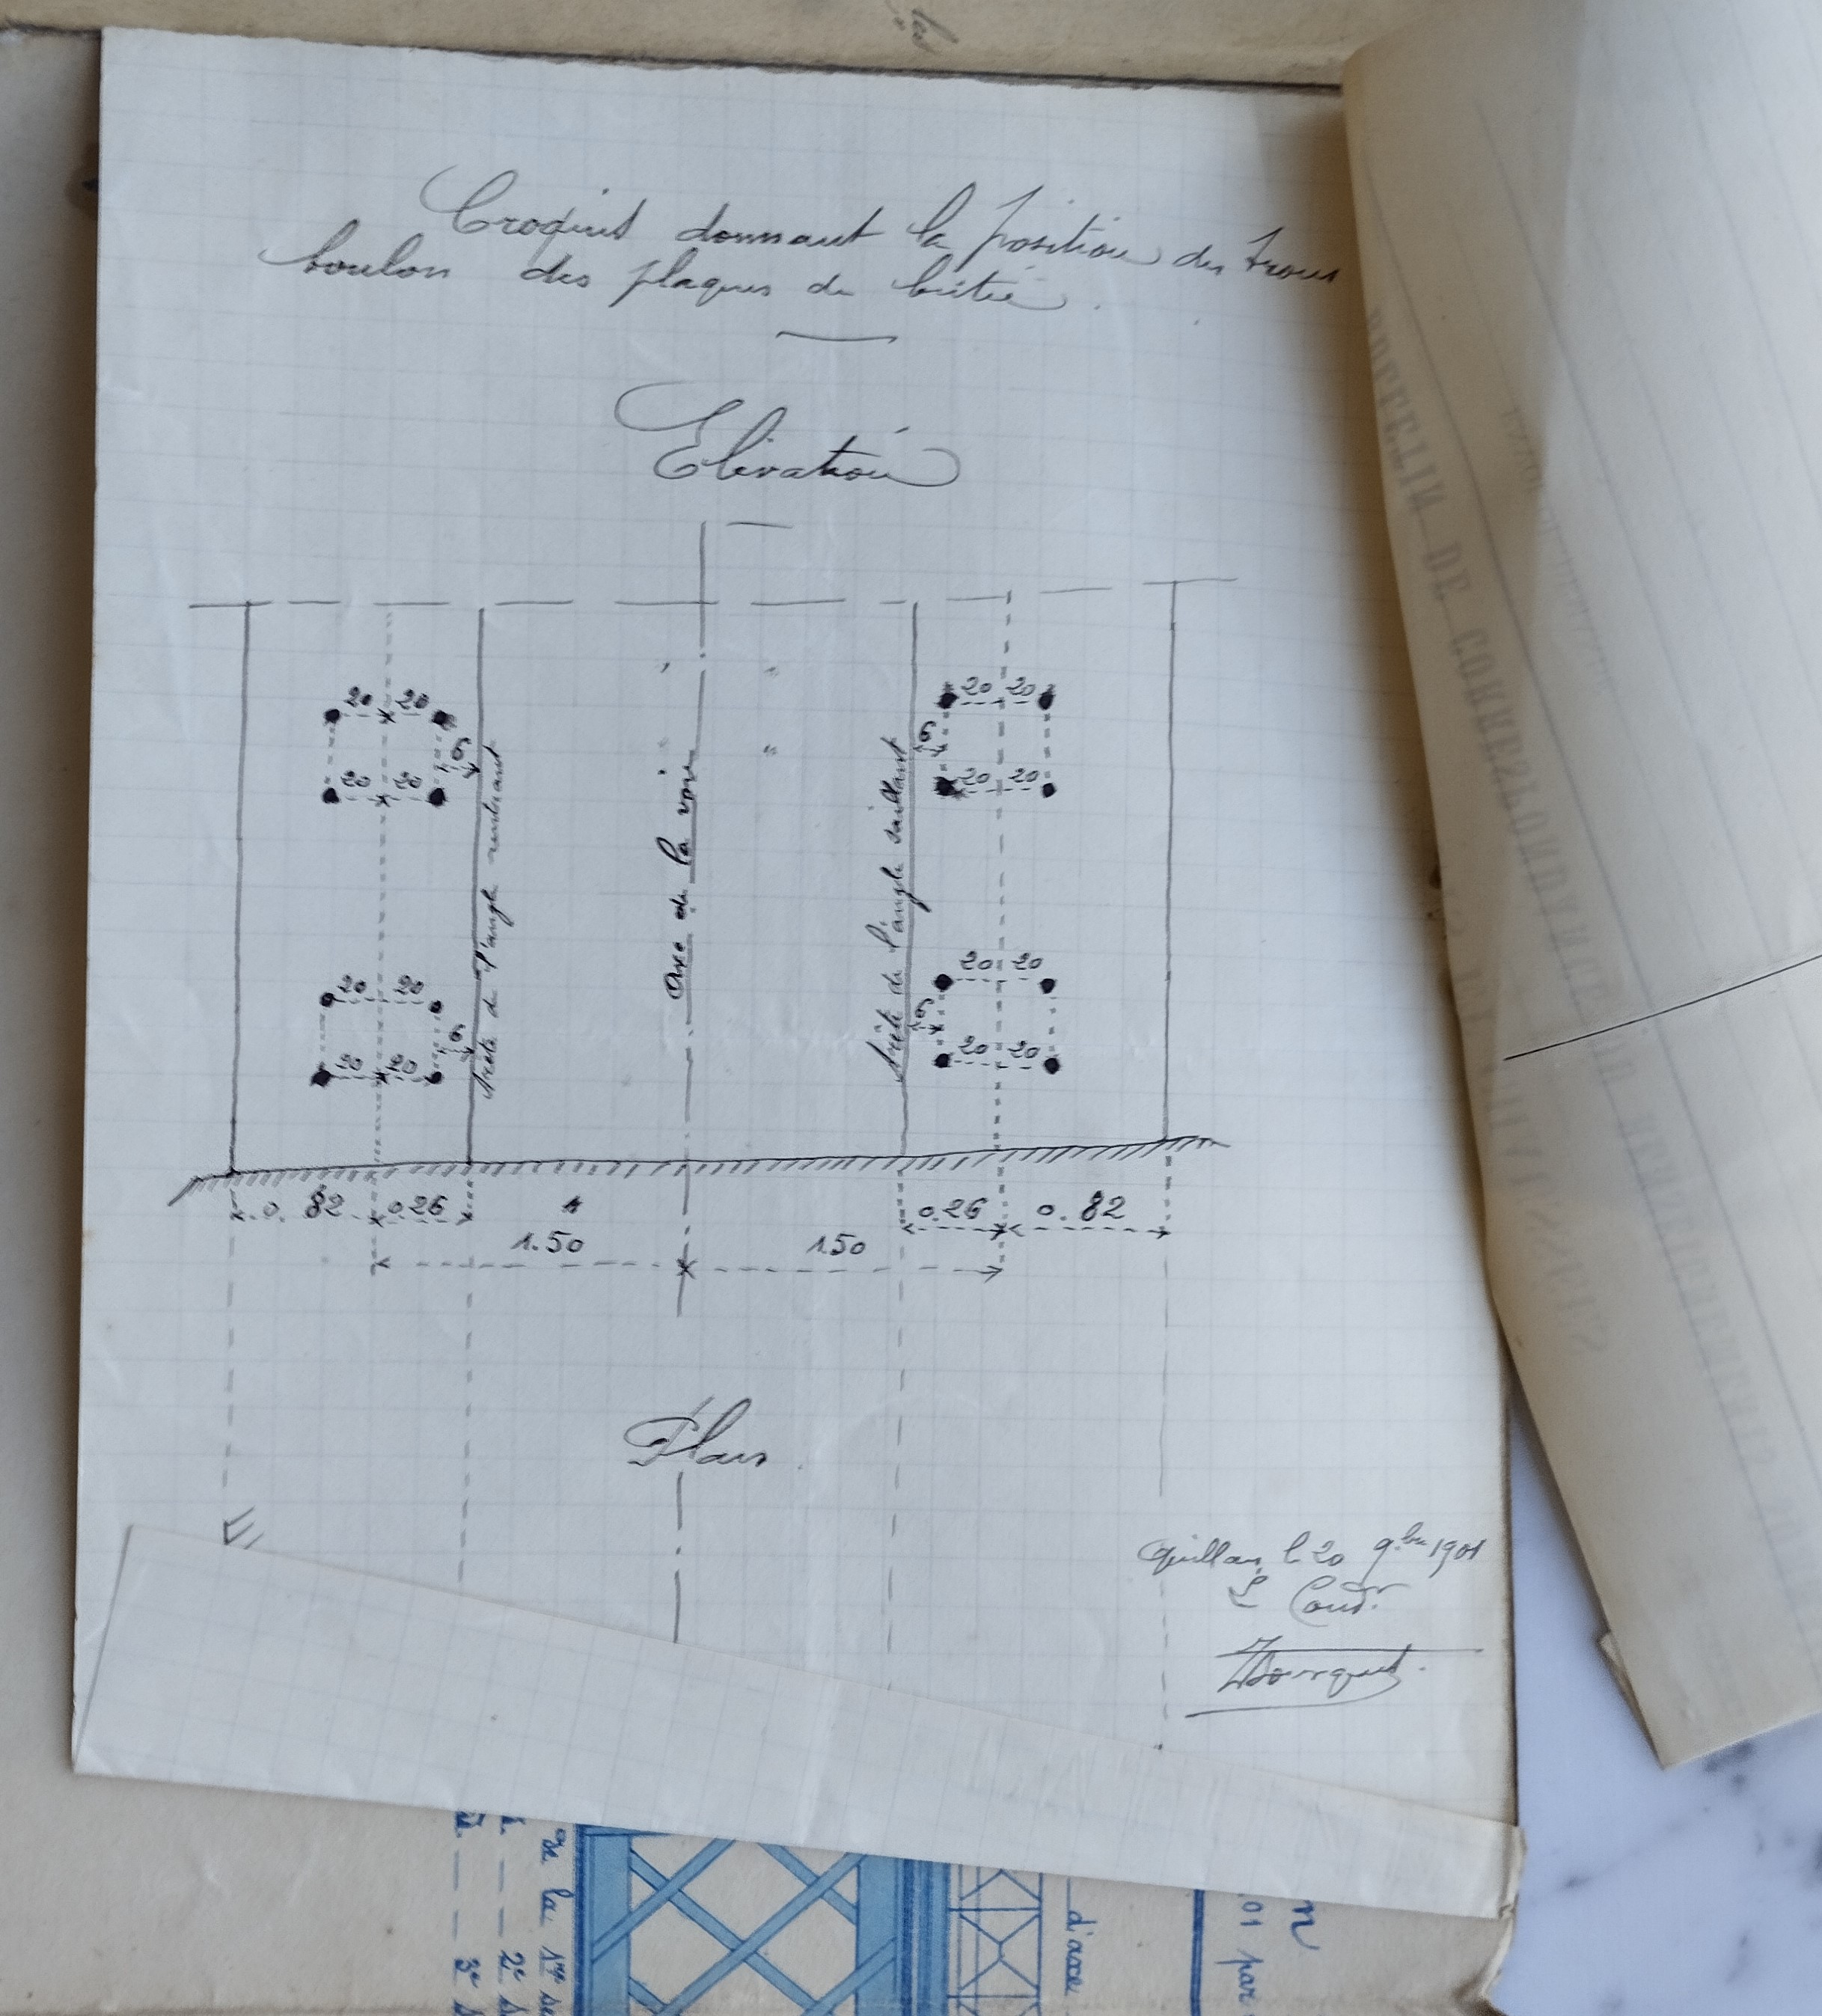 Croquis donnant la position des trous
boulon des plaques de butée.
Elévation
20 20
20 20
6
20 20
20 20
6
Arête de l'angle rentrant
Axe de la voie
Arête de l'angle saillant
20 20
6
20 20
20 20
6
20 20
0.82 0.26
1.50
1.50
0.26 0.82
Plan
Quillan, le 20 9bre 1901
Le Cond.
BULLETIN DE CORRESPONDANCE
de la 1re
2e
3e
d'axe
01 par